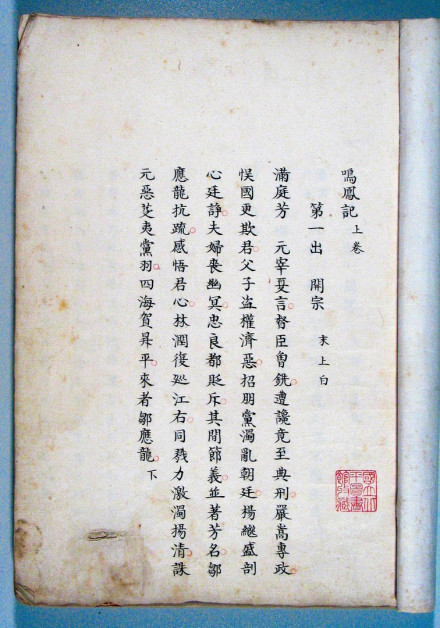 鳴鳳記上卷
第一出 開宗 末上白
滿庭芳 元宰夏言督臣曾銑遭讒竟至典刑嚴嵩專政
悮國更欺君父子盜權濟惡招朋黨濁亂朝廷楊繼盛剖
心廷諍夫婦喪幽冥忠良都貶斥其間節義並著芳名鄒
應龍抗疏感悟君心林潤復廵江右同戮力激濁揚清誅
元惡芟夷黨羽四海賀昇平來者鄒應龍下